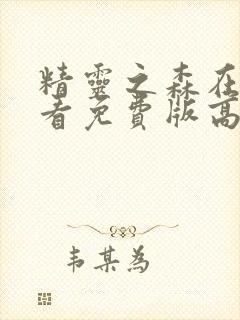 精靈之森在
看免費版高
韦某為